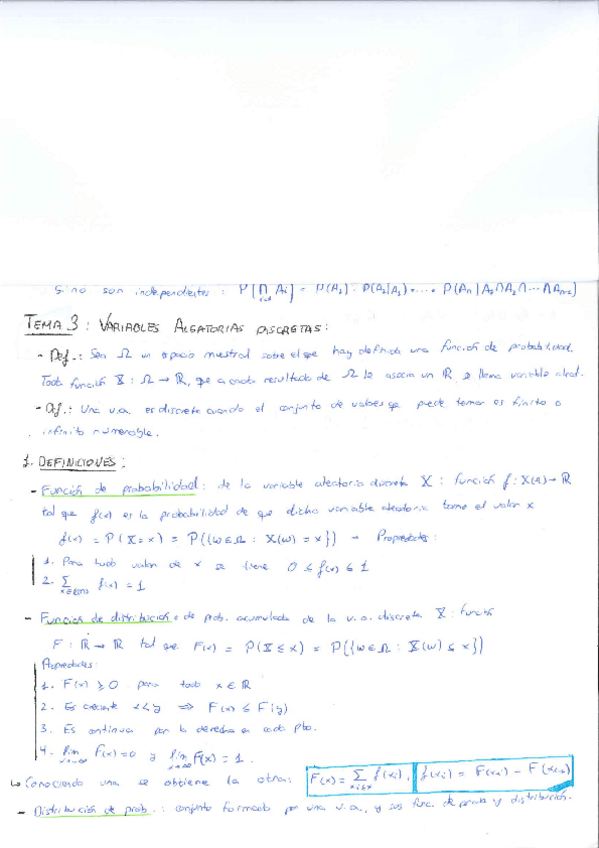 Si no son independientes : P[⋂ Ai] = P(A1) · P(A2|A1) · ... · P(An | A1 ∩ A2 ∩ ... ∩ An-1)
TEMA 3 : VARIABLES ALEATORIAS DISCRETAS :
- Def.: Sea Ω un espacio muestral sobre el que hay definida una función de probabilidad.
Toda función X : Ω → ℝ, que a cada resultado de Ω le asocia un ℝ, se llama variable aleat.
- Def.: Una v.a. es discreta cuando el conjunto de valores que puede tomar es finito o
infinito numerable.
1. DEFINICIONES :
- Función de probabilidad : de la variable aleatoria discreta X : función f : X(Ω) → ℝ
tal que f(x) es la probabilidad de que dicha variable aleatoria tome el valor x
f(x) = P(X = x) = P({w ∈ Ω : X(w) = x}) → Propiedades :
1. Para todo valor de x se tiene 0 ≤ f(x) ≤ 1
2. Σ f(x) = 1
- Función de distribución o de prob. acumulada de la v.a. discreta X : función
F : ℝ → ℝ tal que F(x) = P(X ≤ x) = P({w ∈ Ω : X(w) ≤ x})
Propiedades :
1. F(x) ≥ 0 para todo x ∈ ℝ
2. Es creciente x < y ⇒ F(x) ≤ F(y)
3. Es continua por la derecha en cada pto.
4. lim F(x) = 0 y lim F(x) = 1 .
↳ Conociendo una se obtiene la otra: F(x) = Σ f(xi) , f(xi) = F(xi) - F(xi-1)
- Distribución de prob. : conjunto formado por una v.a. y sus func. de prob y distribución.